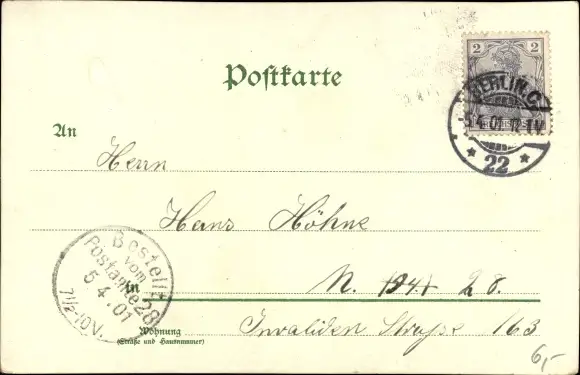 2 2
REICHSPOST
BERLIN. C.
5.4.01. 12-1V.
* 22 *
Postkarte
An
Herrn
Hans Höhne
in N. 28.
Invaliden Straße 163
Wohnung
(Straße und Hausnummer)
Bestellt
vom
Postamte 28
5.4.01
7½-10V.
6,-